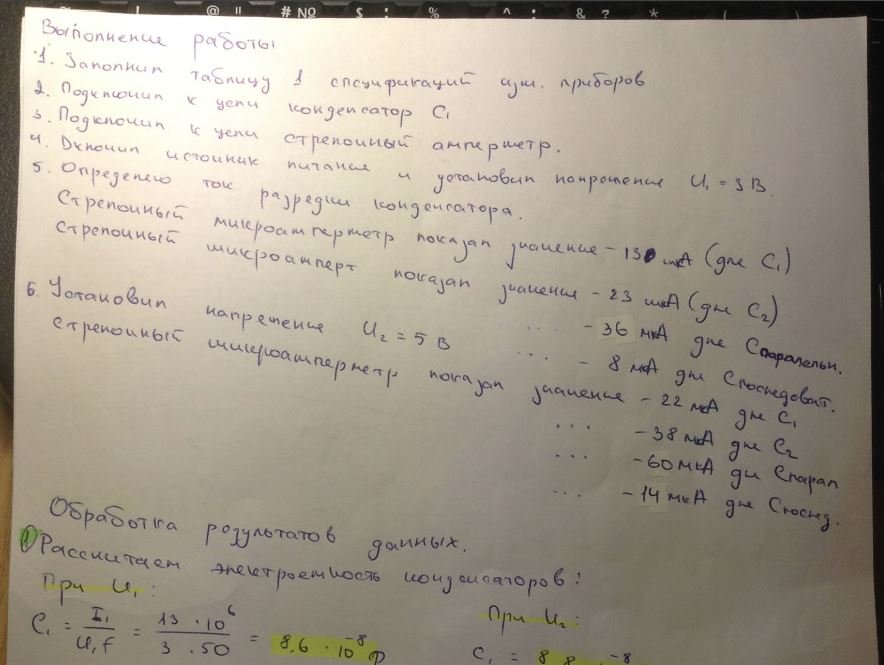 Выполнение работы
1. Заполнил таблицу 1 спецификаций изм. приборов
2. Подключил к цепи конденсатор C₁
3. Подключил к цепи стрелочный амперметр.
4. Включил источник питания и установил напряжение U₁ = 3 В.
5. Определено ток разрядки конденсатора.
Стрелочный микроамперметр показал значение - 13 мкА (для C₁)
Стрелочный микроамперт показал значение - 23 мкА (для C₂)
... - 36 мкА для Cпаралельн.
... - 8 мкА для Cпоследоват.
6. Установил напряжение U₂ = 5 В
Стрелочный микроамперметр показал значение - 22 мкА для C₁
... - 38 мкА для C₂
... - 60 мкА для Cпарал
... - 14 мкА для Cпослед.
Обработка результатов данных.
1) Рассчитаем электроемкость конденсаторов:
При U₁:
C₁ = I₁ / U₁f = 13 · 10⁶ / 3 · 50 = 8,6 · 10⁻⁸ Ф
При U₂:
C₁ = 8,8 · 10⁻⁸